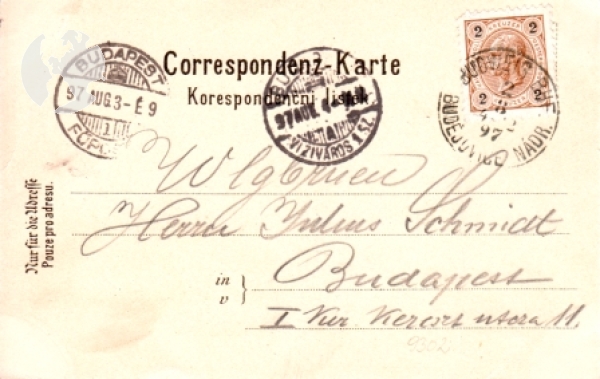 Correspondenz-Karte
Korespondenční lístek
2 2
2 2
BUDAPEST
97 AUG. 3 - E 9
FŐPO
1
97 AUG.
VIZIVÁROS
BUDWEIS
BUDĚJOVICE NÁDR.
2
8
97
Herrn Julius Schmidt
in
v
Budapest
I Kur. Kereszt utcza 11.
Nur für die Adresse
Pouze pro adresu.
9302